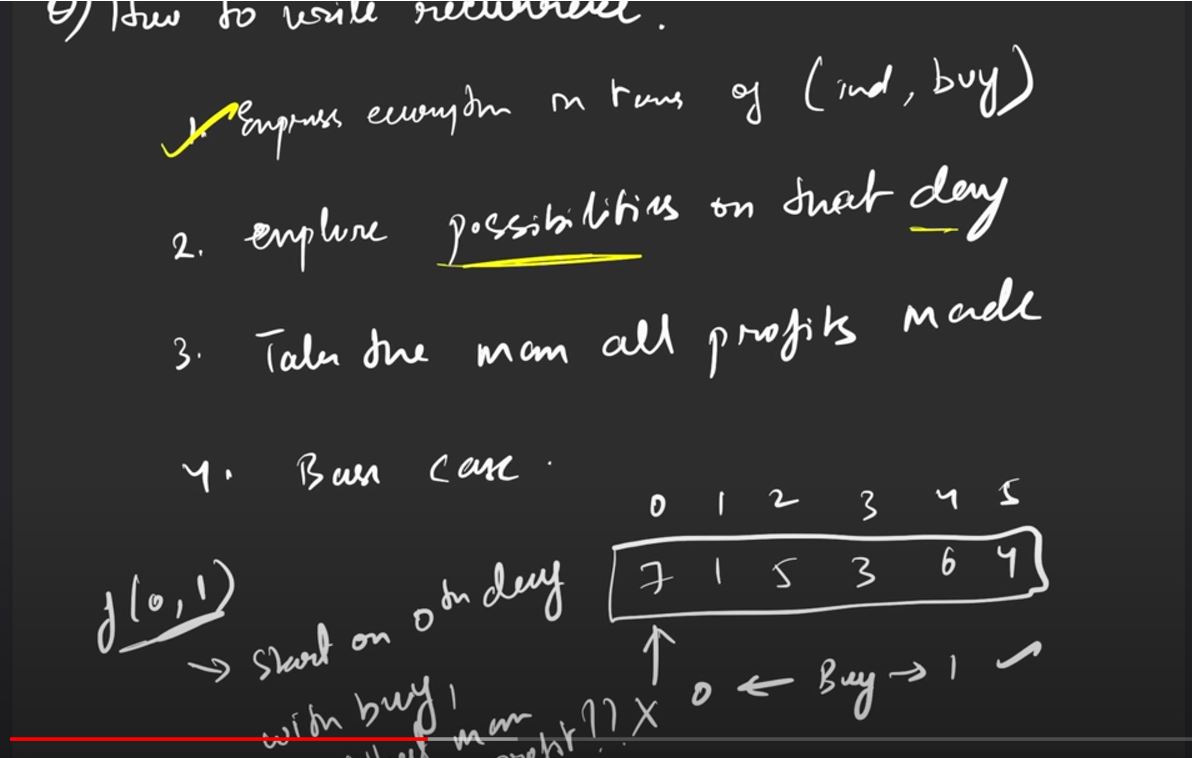 Q) How to write recurrence.
1. Express everything in terms of (ind, buy)
2. explore possibilities on that day
3. Take the max all profits made
4. Base case.
0 1 2 3 4 5
7 1 5 3 6 4
f(0,1)
→ Start on 0th day
with buy,
max
profit??
X 0 ← Buy → 1